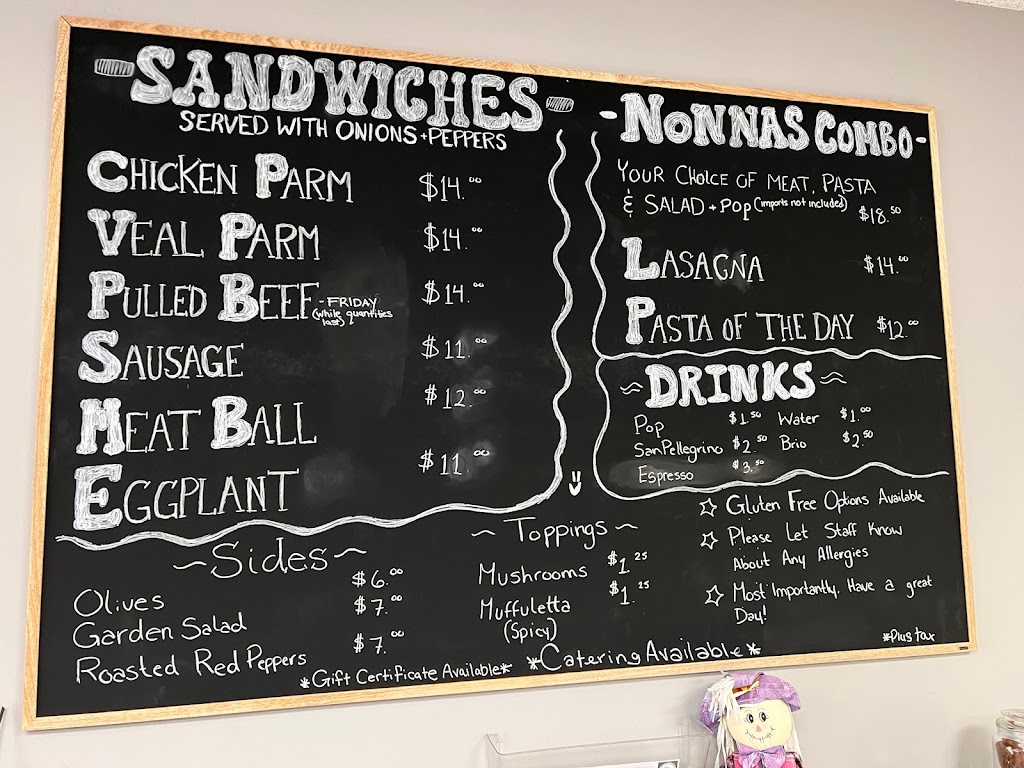 SANDWICHES
SERVED WITH ONIONS + PEPPERS
CHICKEN PARM $14.00
VEAL PARM $14.00
PULLED BEEF - FRIDAY $14.00
(while quantities
last)
SAUSAGE $11.00
MEAT BALL $12.00
EGGPLANT $11.00
- NONNAS COMBO -
YOUR CHOICE OF MEAT, PASTA
& SALAD + POP (imports not included) $18.50
LASAGNA $14.00
PASTA OF THE DAY $12.00
~ DRINKS ~
Pop $1.50 Water $1.00
SanPellegrino $2.50 Brio $2.50
Espresso $3.50
~ Sides ~
Olives $6.00
Garden Salad $7.00
Roasted Red Peppers $7.00
~ Toppings ~
Mushrooms $1.25
Muffuletta $1.25
(Spicy)
☆ Gluten Free Options Available
☆ Please Let Staff Know
About Any Allergies
☆ Most Importantly, Have a great
Day!
*Plus tax
*Gift Certificate Available*
*Catering Available*